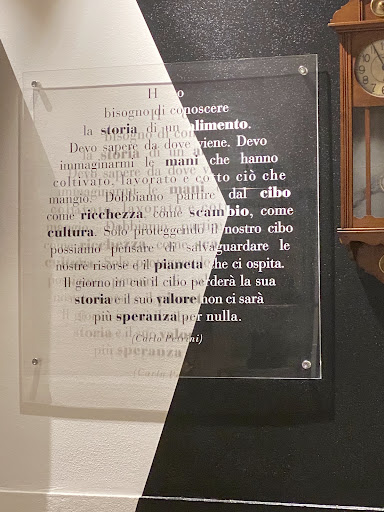 Ho
bisogno di conoscere
la storia di un alimento.
Devo sapere da dove viene. Devo
immaginarmi le mani che hanno
coltivato, lavorato e cotto ciò che
mangio. Dobbiamo partire dal cibo
come ricchezza come scambio, come
cultura. Solo proteggendo il nostro cibo
possiamo pensare di salvaguardare le
nostre risorse e il pianeta che ci ospita.
Il giorno in cui il cibo perderà la sua
storia e il suo valore non ci sarà
più speranza per nulla.
(Carlo Petrini)